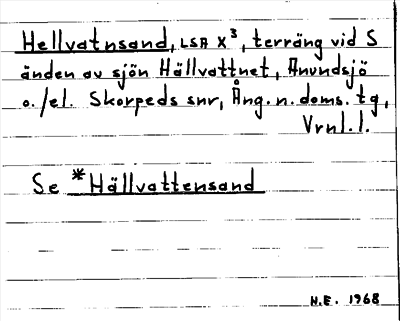 Hellvatnsand, LSA X³, terräng vid S
änden av sjön Hällvattnet, Anundsjö
o./el. Skorpeds snr, Ång. n. doms. tg,
Vrnl. l.
Se *Hällvattensand
H.E. 1968